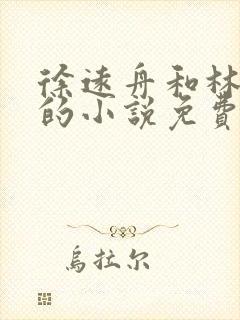 徐遠舟和林
的小說免費
烏拉尔